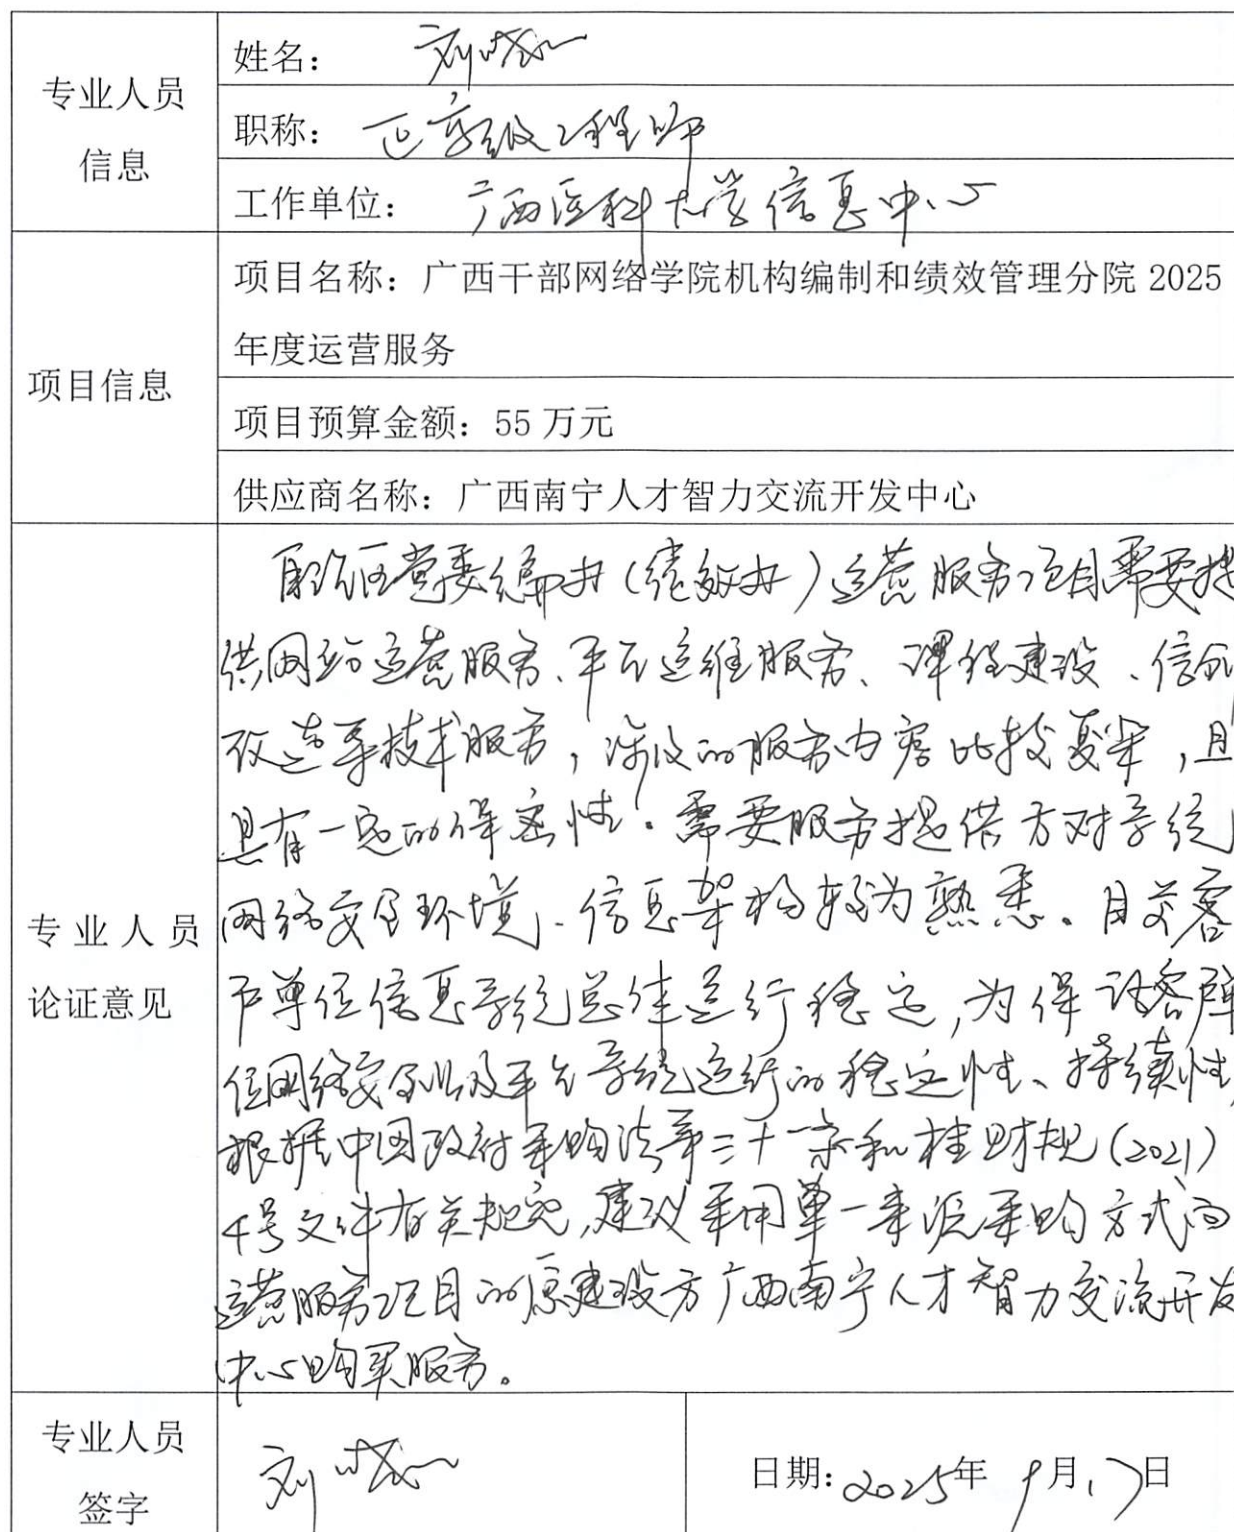 专业人员
信息
姓名：刘
职称：正高级工程师
工作单位：广西医科大学信息中心
项目信息
项目名称：广西干部网络学院机构编制和绩效管理分院 2025
年度运营服务
项目预算金额：55 万元
供应商名称：广西南宁人才智力交流开发中心
专业人员
论证意见
自治区党委编办（绩效办）运营服务项目需要提
供网站运营服务、平台运维服务、课程建设、信创
改造等技术服务，涉及的服务内容比较复杂，且
具有一定的保密性。需要服务提供方对系统
网络安全环境、信息架构较为熟悉。目前客
户单位信息系统总体运行稳定，为保证客户单
位网络安全以及平台系统运行的稳定性、持续性，
根据中国政府采购法第三十一条和桂财规(2021)
4号文件有关规定，建议采用单一来源采购方式向
运营服务项目的原建设方广西南宁人才智力交流开发
中心购买服务。
专业人员
签字
刘
日期：2025年9月17日